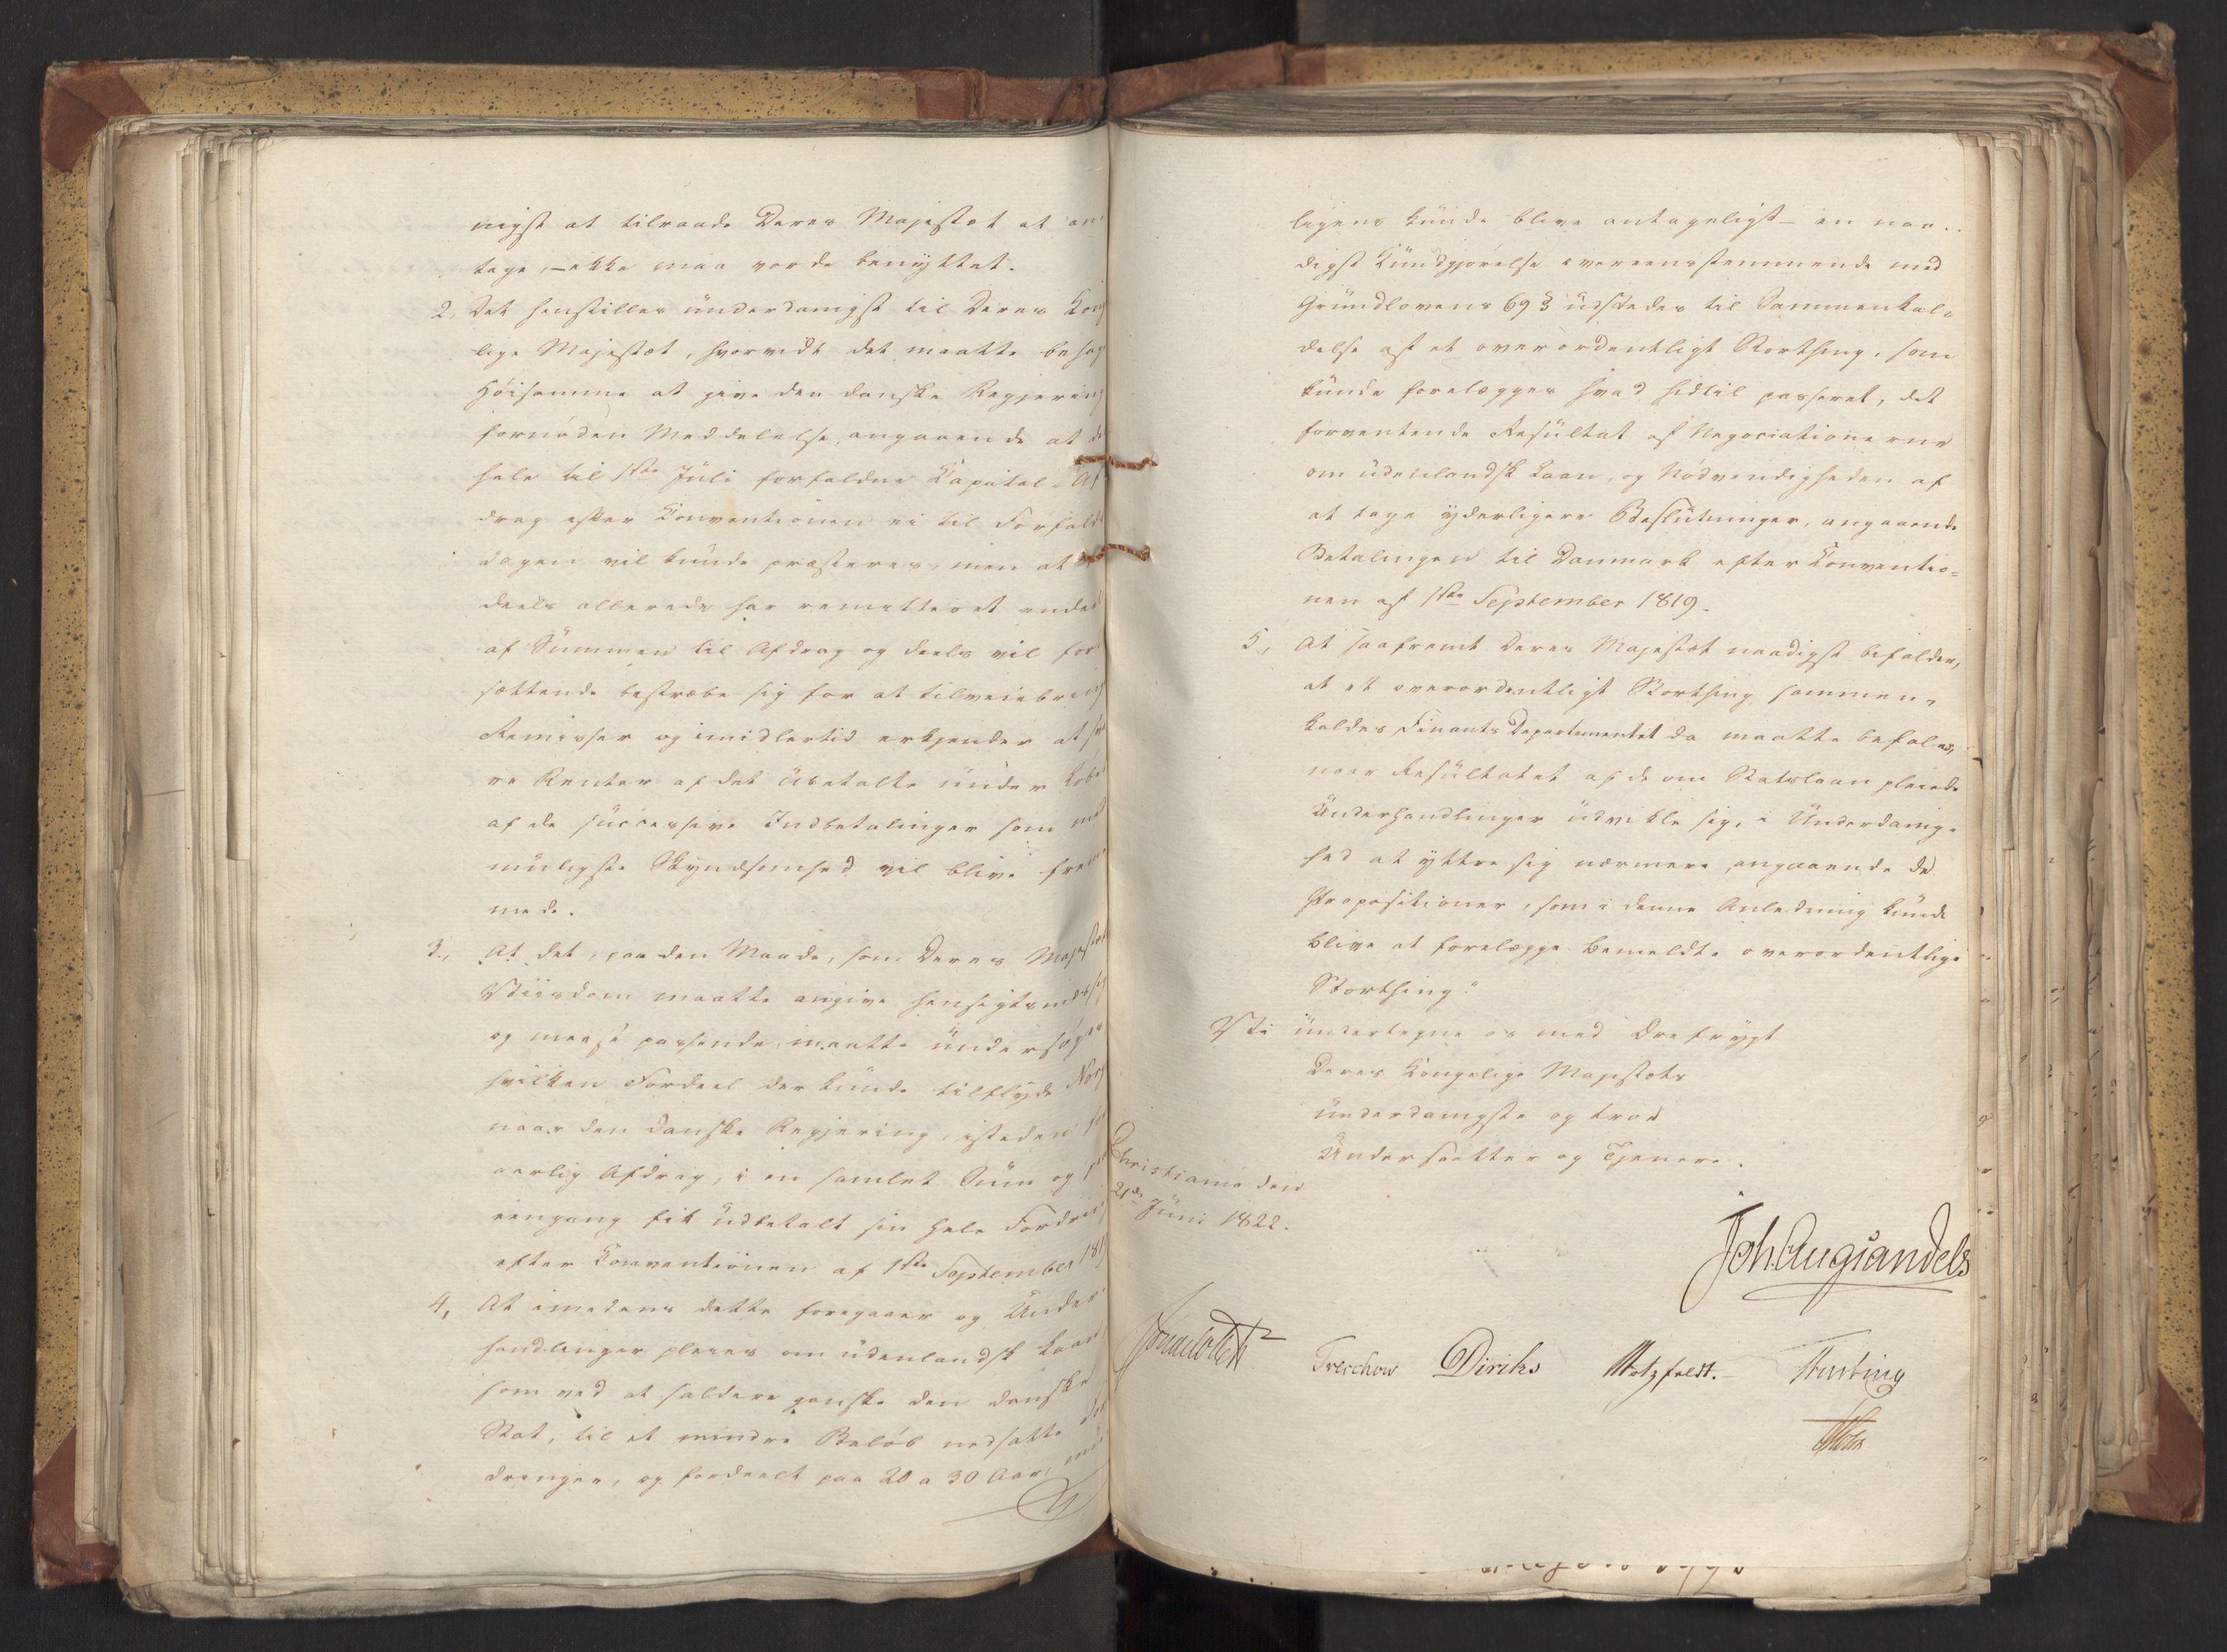 nigst at tilraade Deres Majestæt at an-
tage, – ikke maa vorde benyttet.
2, Det henstilles underdanigst til Deres Kong
lige Majestæt, hvorvidt det maatte behag
Høisamme at give den danske Regjering
fornøden Meddelelse angaaende at de
hele til 1ste Juli forfaldne Kapital-Af
drag efter Konventionen ei til Forfalds
dagen vil kunde præsteres, men at
deels allerede har remitteret endeel
af Summen til Afdrag og deels vil fort
sættende bestræbe sig for at tilveiebring
Remisser og imidlertid erkjender at
re Renter af det Ubetalte under Løbet
af de successive Indbetalinger som med
muligste Skyndsomhed vil blive frem
mede.
3., At det, paa den Maade, som Deres Majestæts
Viisdom maatte angive hensigtsmæssig
og meest passende, maatte undersøges
hvilken Fordeel der kunde tilflyde Norge
naar den danske Regjering, isteden for
aarlig Afdrag, i en samlet Sum og paa
eengang fik udbetalt sin hele Fordring
efter Konventionen af 1ste September 1819
4, At imedens dette foregaaer og Under-
handlinger pleies om udenlandsk Laan
som ved at saldere ganske den danske
Stat, til et mindre Beløb nedsatte
dringen, og fordeelt paa 20 a 30 Aar,
ligens kunde blive antageligt – en naa-
digst Kundgjørelse overeensstemmende med
Grundlovens 69 § udstedes til Sammenkal-
delse af et overordentligt Storthing, som
kunde forelægges hvad hidtil passeret, det
forventende Resultat af Negociationerne
om udenlandsk Laan, og Nødvendigheden af
at tage yderligere Beslutninger, angaaende
Betalingen til Danmark efter Konventio-
nen af 1ste September 1819.
5, At saafremt Deres Majestæt naadigst befalder,
at et overordentligt Storthing sammen-
kaldes Finants Departementet da maatte befales,
naar Resultatet af de om Statslaan pleiede
Underhandlinger udvikle sig, i Underdanig-
hed at yttre sig nærmere angaaende de
Propositioner, som i denne Anledning kunde
blive at forelægge bemeldte overordentlige
Storthing."
Vi undertegne os med Ærefrygt
Deres Kongelige Majestæts
underdanigste og troe
Undersaatter og Tjenere.
Christiania den
21de Juni 1822.
Joh. Aug Sandels
Sommerfeldt
Treschow Diriks Motzfeldt. Fasting
Holst